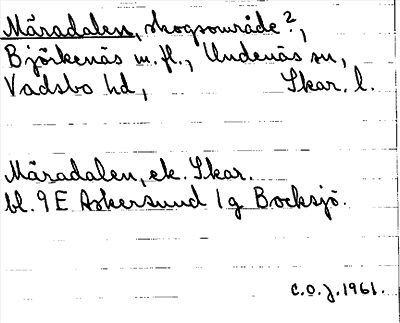 Märadalen, skogsområde?,
Björkenäs m.fl., Undenäs sn,
Vadsbo hd, Skar. l.
Märadalen, ek. Skar.
bl. 9E Askersund 1g Bocksjö.
C.O.J. 1961.